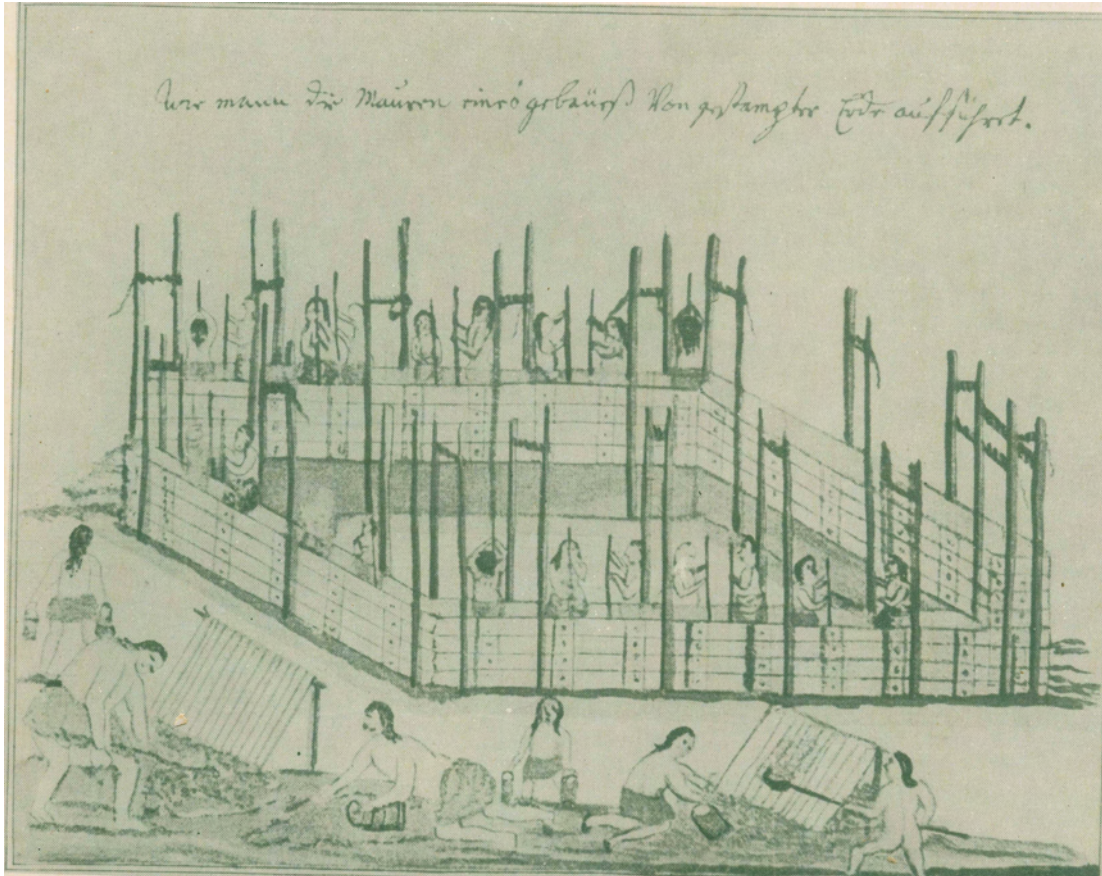 Wie mann die Mauren eines gebäuß Von gestampter Erde aufführet.